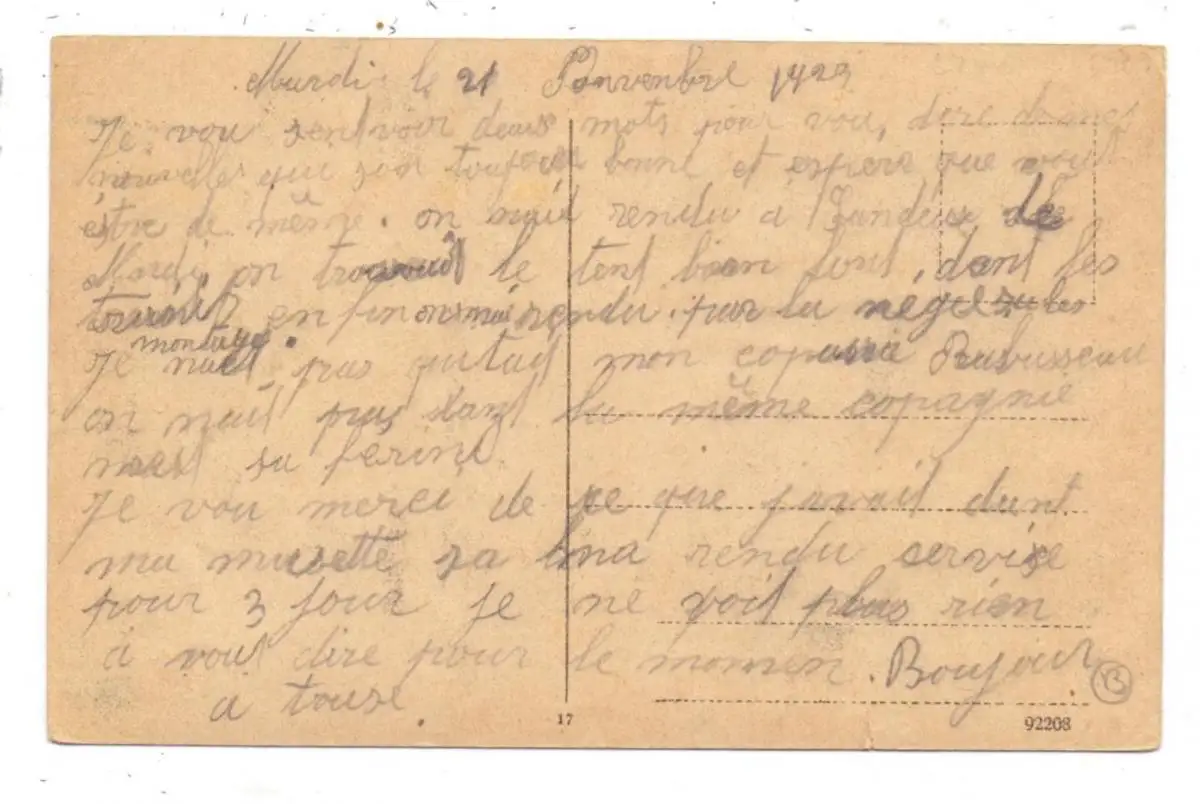 Mardi le 21 Nonvenbre 1923
Je vou sentvoir deux mots pour vou, dire de mes
nouvelles qui son toujour bonne et espere que vout
estre de même. on nait rendu a Landeux de
Mardi, on trouvait le tent bien lont, dant les
en fin on nait rendu. par la négez
montage.
Je nait pas quitait mon copain Rabusseau
on nait pas dant la même copagnie
mest sa ferine.
Je vou merci de ce que javait dant
ma musette sa ma rendu servise
pour 3 jour Je ne voit plus rien
a vout dire pour le momen. Boujour
a touse.
13
17
92208